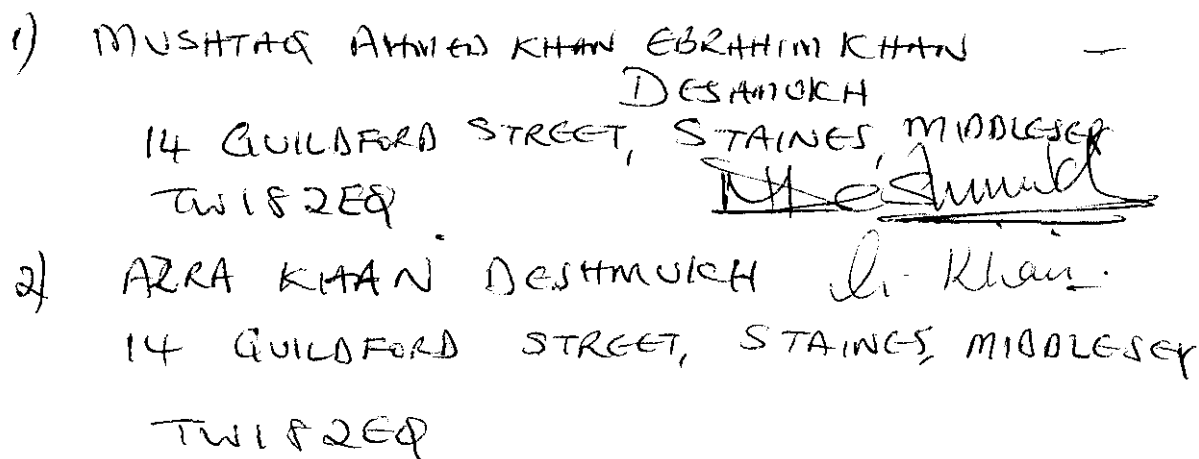 1) MUSHTAQ AHMED KHAN EBRAHIM KHAN —
DESHMUKH
14 GUILDFORD STREET, STAINES, MIDDLESEX
TW18 2EQ
2) AZRA KHAN DESHMUKH Khan.
14 GUILDFORD STREET, STAINES, MIDDLESEX
TW18 2EQ